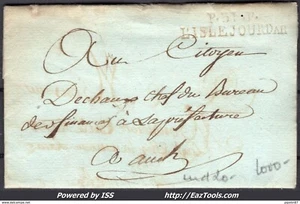 L'ISLEJOURDAIN
Au Citoyen
Dechaux chef du Bureau
des finances à la préfecture
a auch
1000-
Powered by ISS
http://EazTools.Com